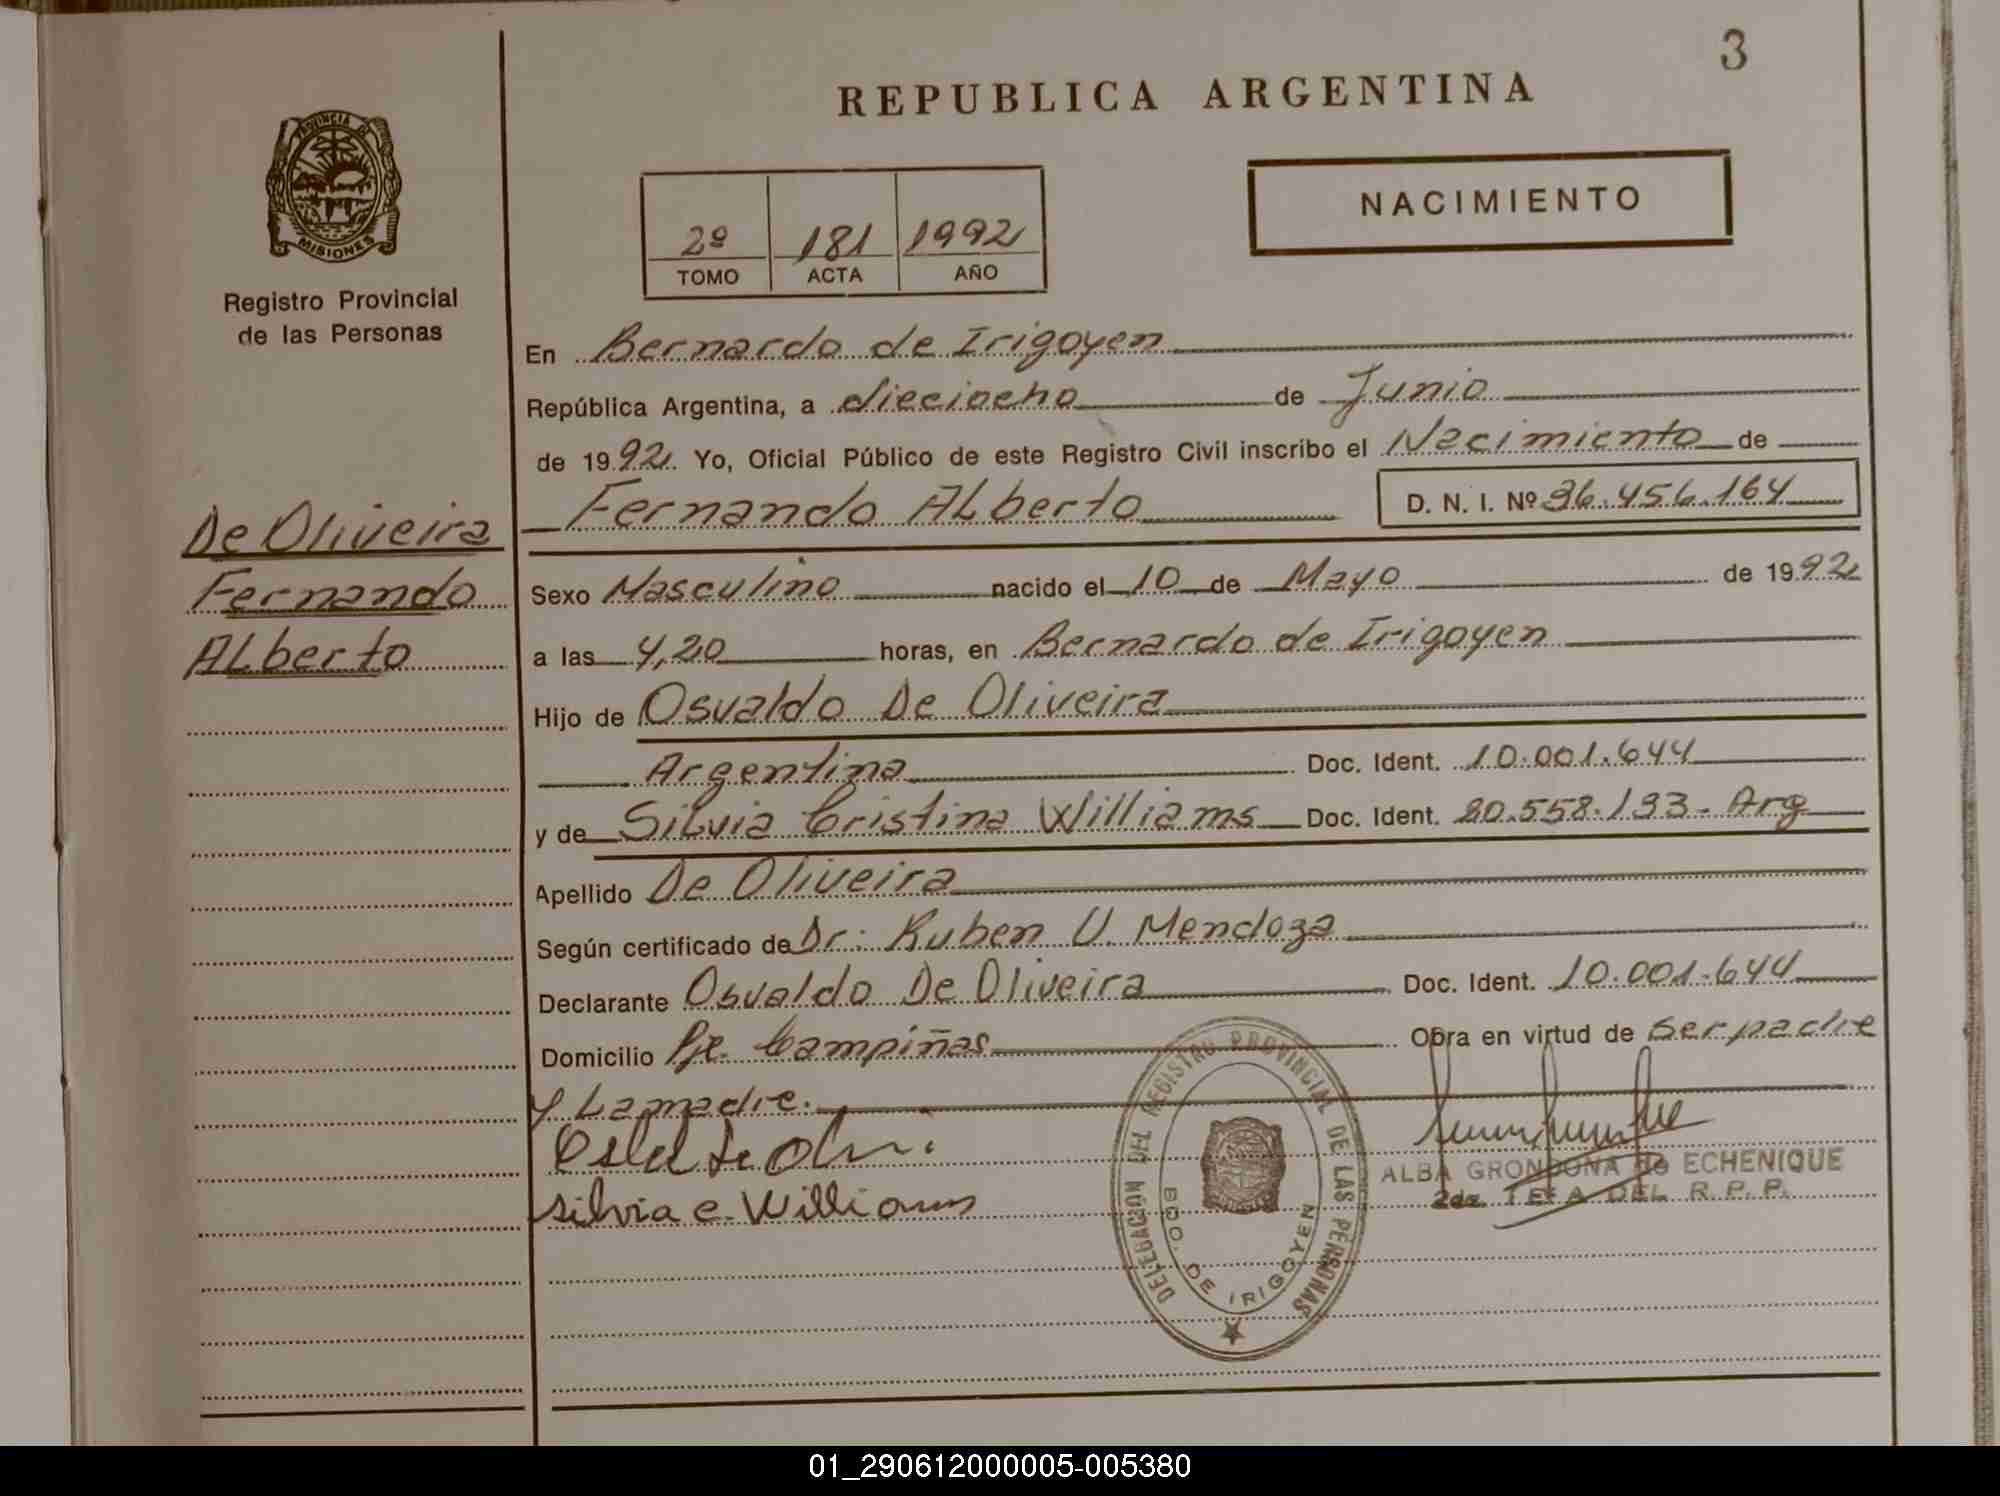 3
REPUBLICA ARGENTINA
PROVINCIA DE
MISIONES
Registro Provincial
de las Personas
2º 181 1992
TOMO ACTA AÑO
NACIMIENTO
En Bernardo de Irigoyen
República Argentina, a dieciocho de Junio
de 1992. Yo, Oficial Público de este Registro Civil inscribo el Nacimiento de
Fernando Alberto D. N. I. Nº 36.456.164
De Oliveira
Fernando
Alberto
Sexo Masculino nacido el 10 de Mayo de 1992
a las 4,20 horas, en Bernardo de Irigoyen
Hijo de Osvaldo De Oliveira
Argentina Doc. Ident. 10.001.644
y de Silvia Cristina Williams Doc. Ident. 20.558.133- Arg
Apellido De Oliveira
Según certificado de Dr: Ruben U. Mendoza
Declarante Osvaldo De Oliveira Doc. Ident. 10.001.644
Domicilio Pje. Campiñas Obra en virtud de ser padre
y La madre.
silvia c. Williams
DELEGACIÓN DEL REGISTRO PROVINCIAL DE LAS PERSONAS
BDO. DE IRIGOYEN
ALBA GRONDONA de ECHENIQUE
2da JEFA DEL R. P. P.
01_290612000005-005380